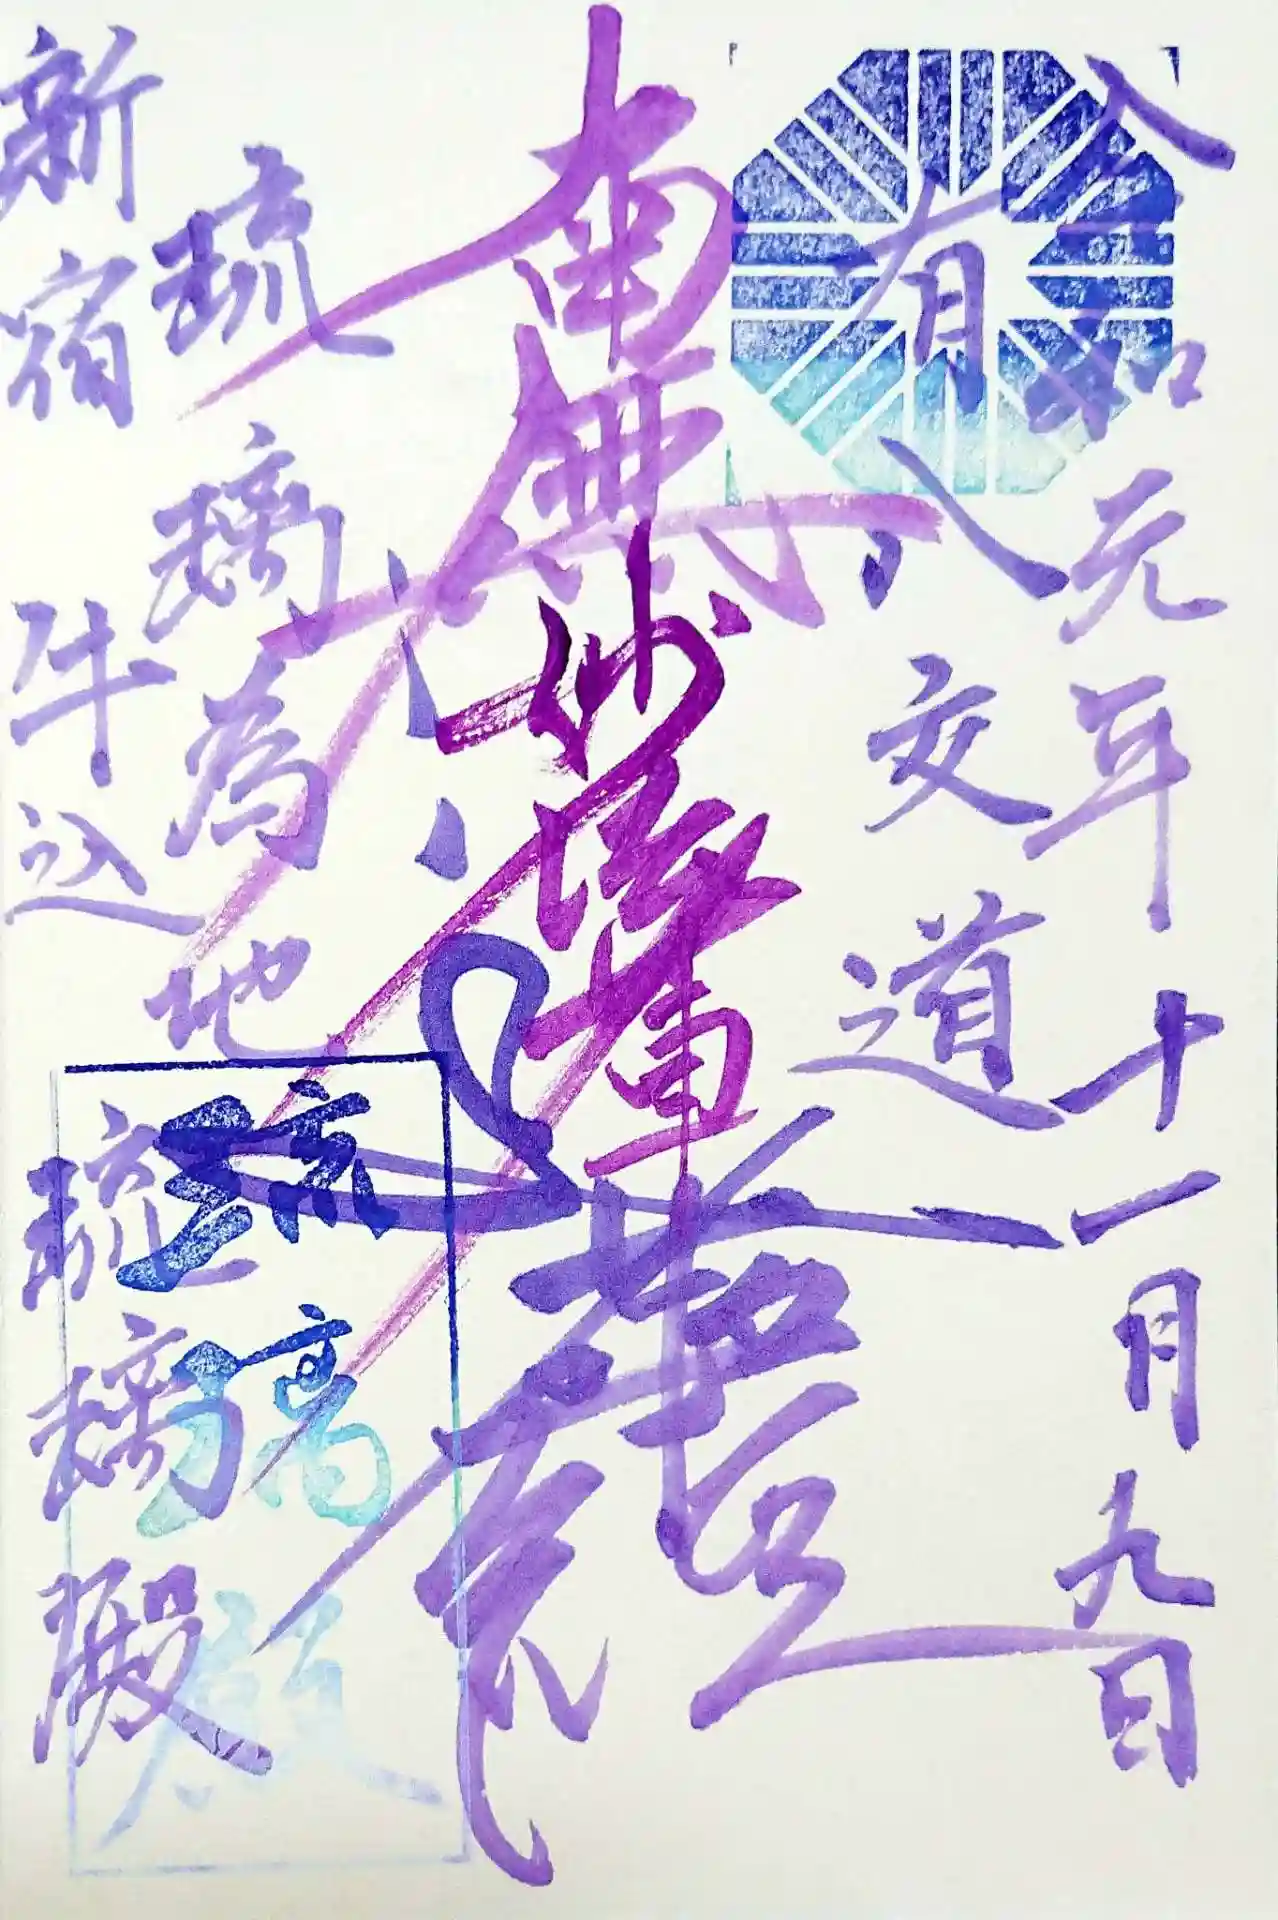 令和元年十一月九日
有八交道
南無妙法蓮華経
琉璃為地
新宿牛込
琉璃殿
琉璃殿